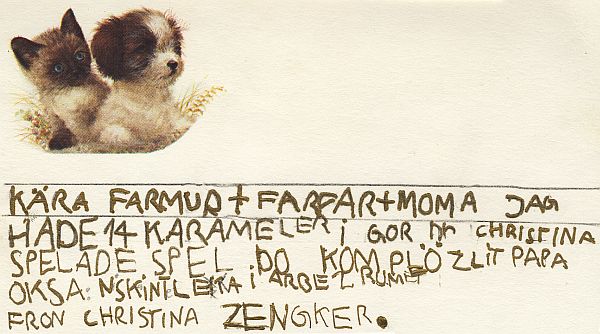 KÄRA FARMUR + FARFAR + MOMA JAG
HADE 14 KARAMELER I GOR CHRISTINA
SPELADE SPEL DO KOM PLÖZLIT PAPA
OKSA I
FRON CHRISTINA ZENGKER.